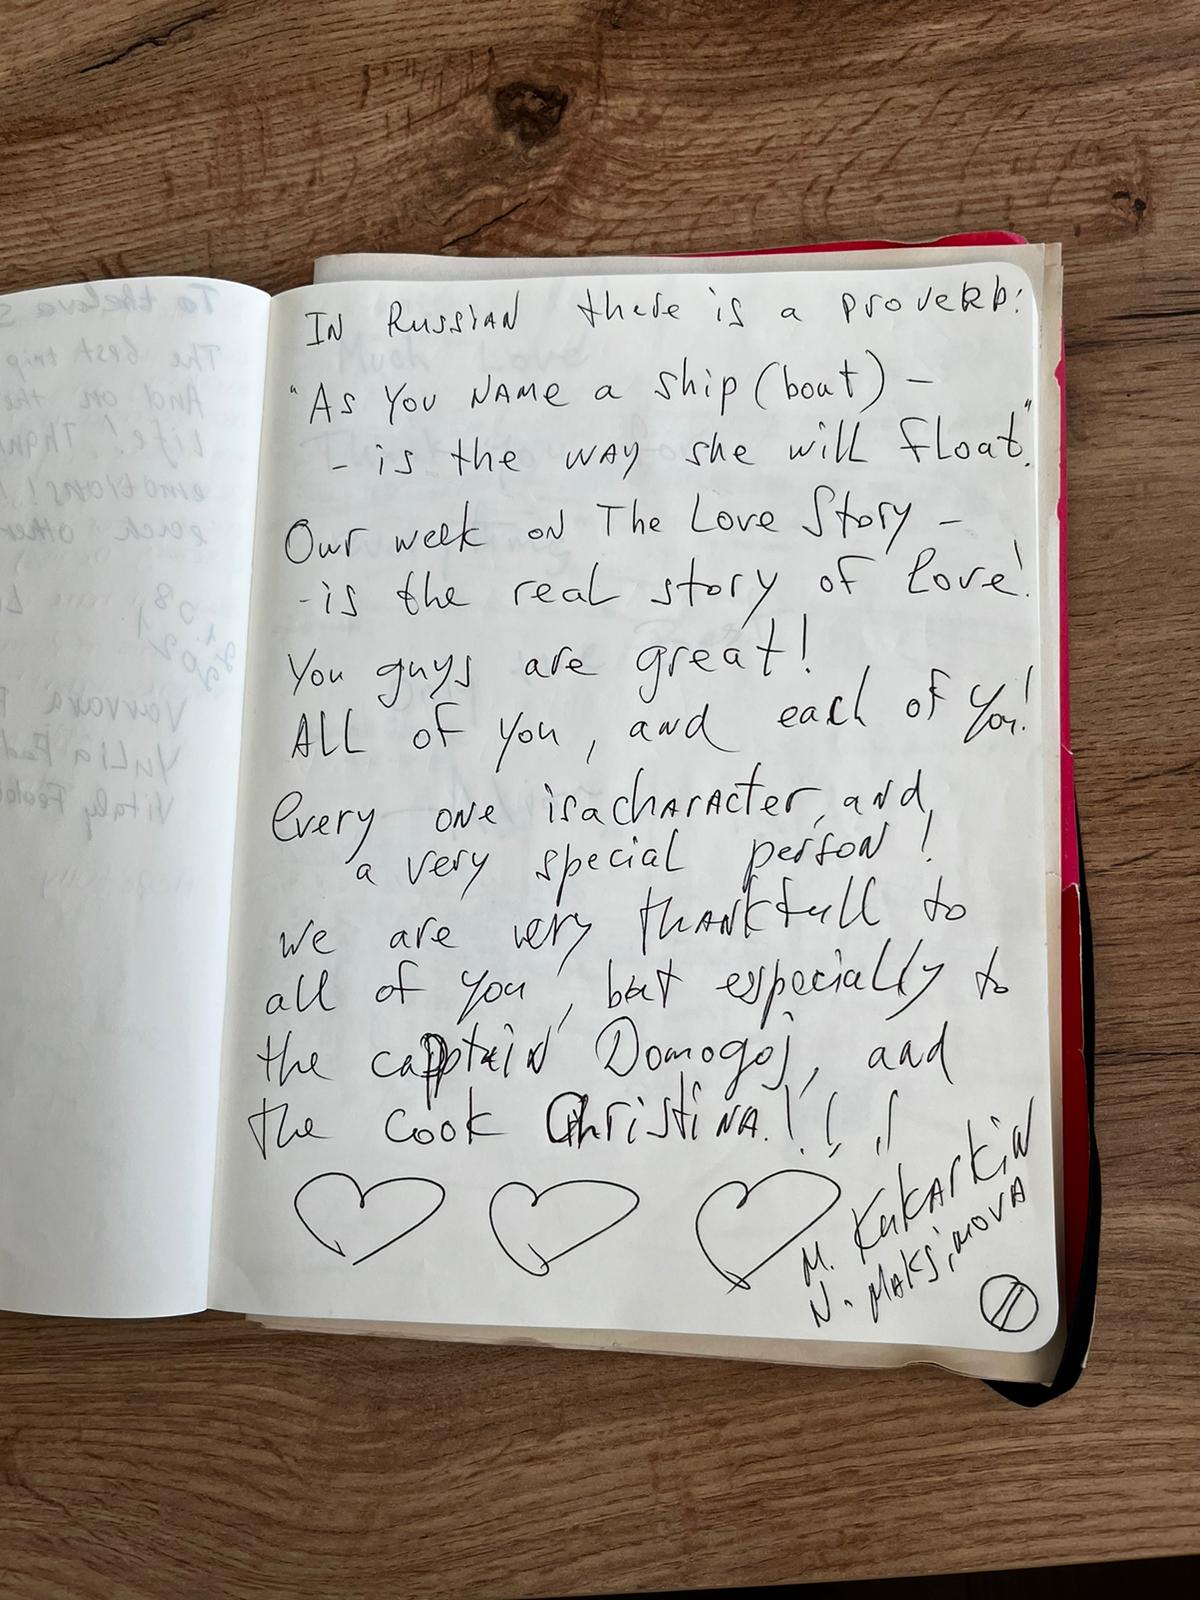 IN RUSSIAN there is a proverb:
"As you NAME a ship (boat) –
– is the way she will float."
Our week on The Love Story –
– is the real story of love!
You guys are great!
ALL of you, and each of you!
Every one is a character, and
a very special person!
We are very thankfull to
all of you, but especially to
the captain Domogoj, and
the cook Christina!!!
M. Kukarkin
N. Maksimova
To the Love S
The best trip
And on the
Life! Than
emotions!
each other
Varvara
Yulia Fed
Vitaly Fedo